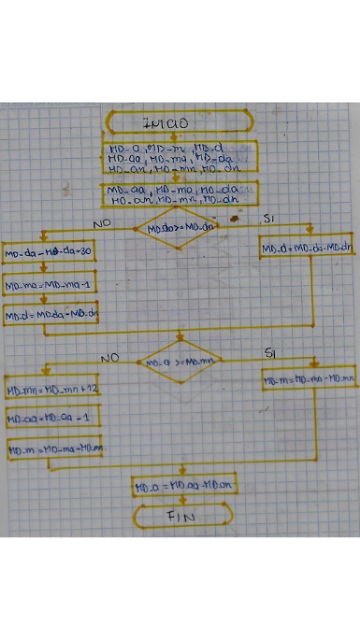 INICIO
MD-a, MD-m, MD-d
MD-aa, MD-ma, MD-da
MD-an, MD-mn, MD-dn
MD-aa, MD-ma, MD-da
MD-an, MD-mn, MD-dn
NO
MD-da>=MD-dn
SI
MD-da=MD-da+30
MD-d=MD-da-MD-dn
MD-ma=MD-ma-1
MD-d=MD-da-MD-dn
NO
>=MD-mn
SI
MD-mn=MD-mn+12
MD-m=MD-ma-MD-mn
MD-aa=MD-aa-1
MD-m=MD-ma-MD-mn
MD-a=MD-aa-MD-an
FIN